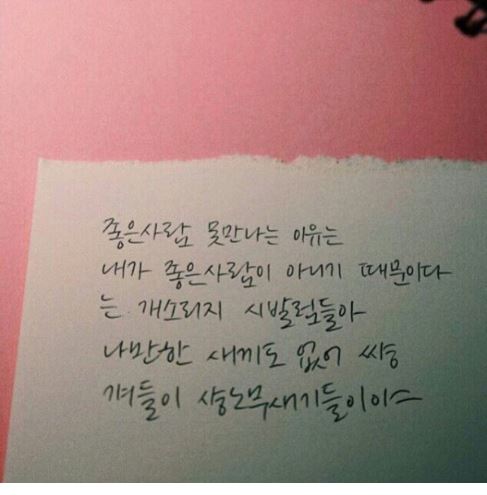 좋은사람 못만나는 이유는
내가 좋은사람이 아니기 때문이다
는 개소리지 시발럼들아
나만한 새끼도 없어 씨숑
갸들이 숑노무새기들이이스